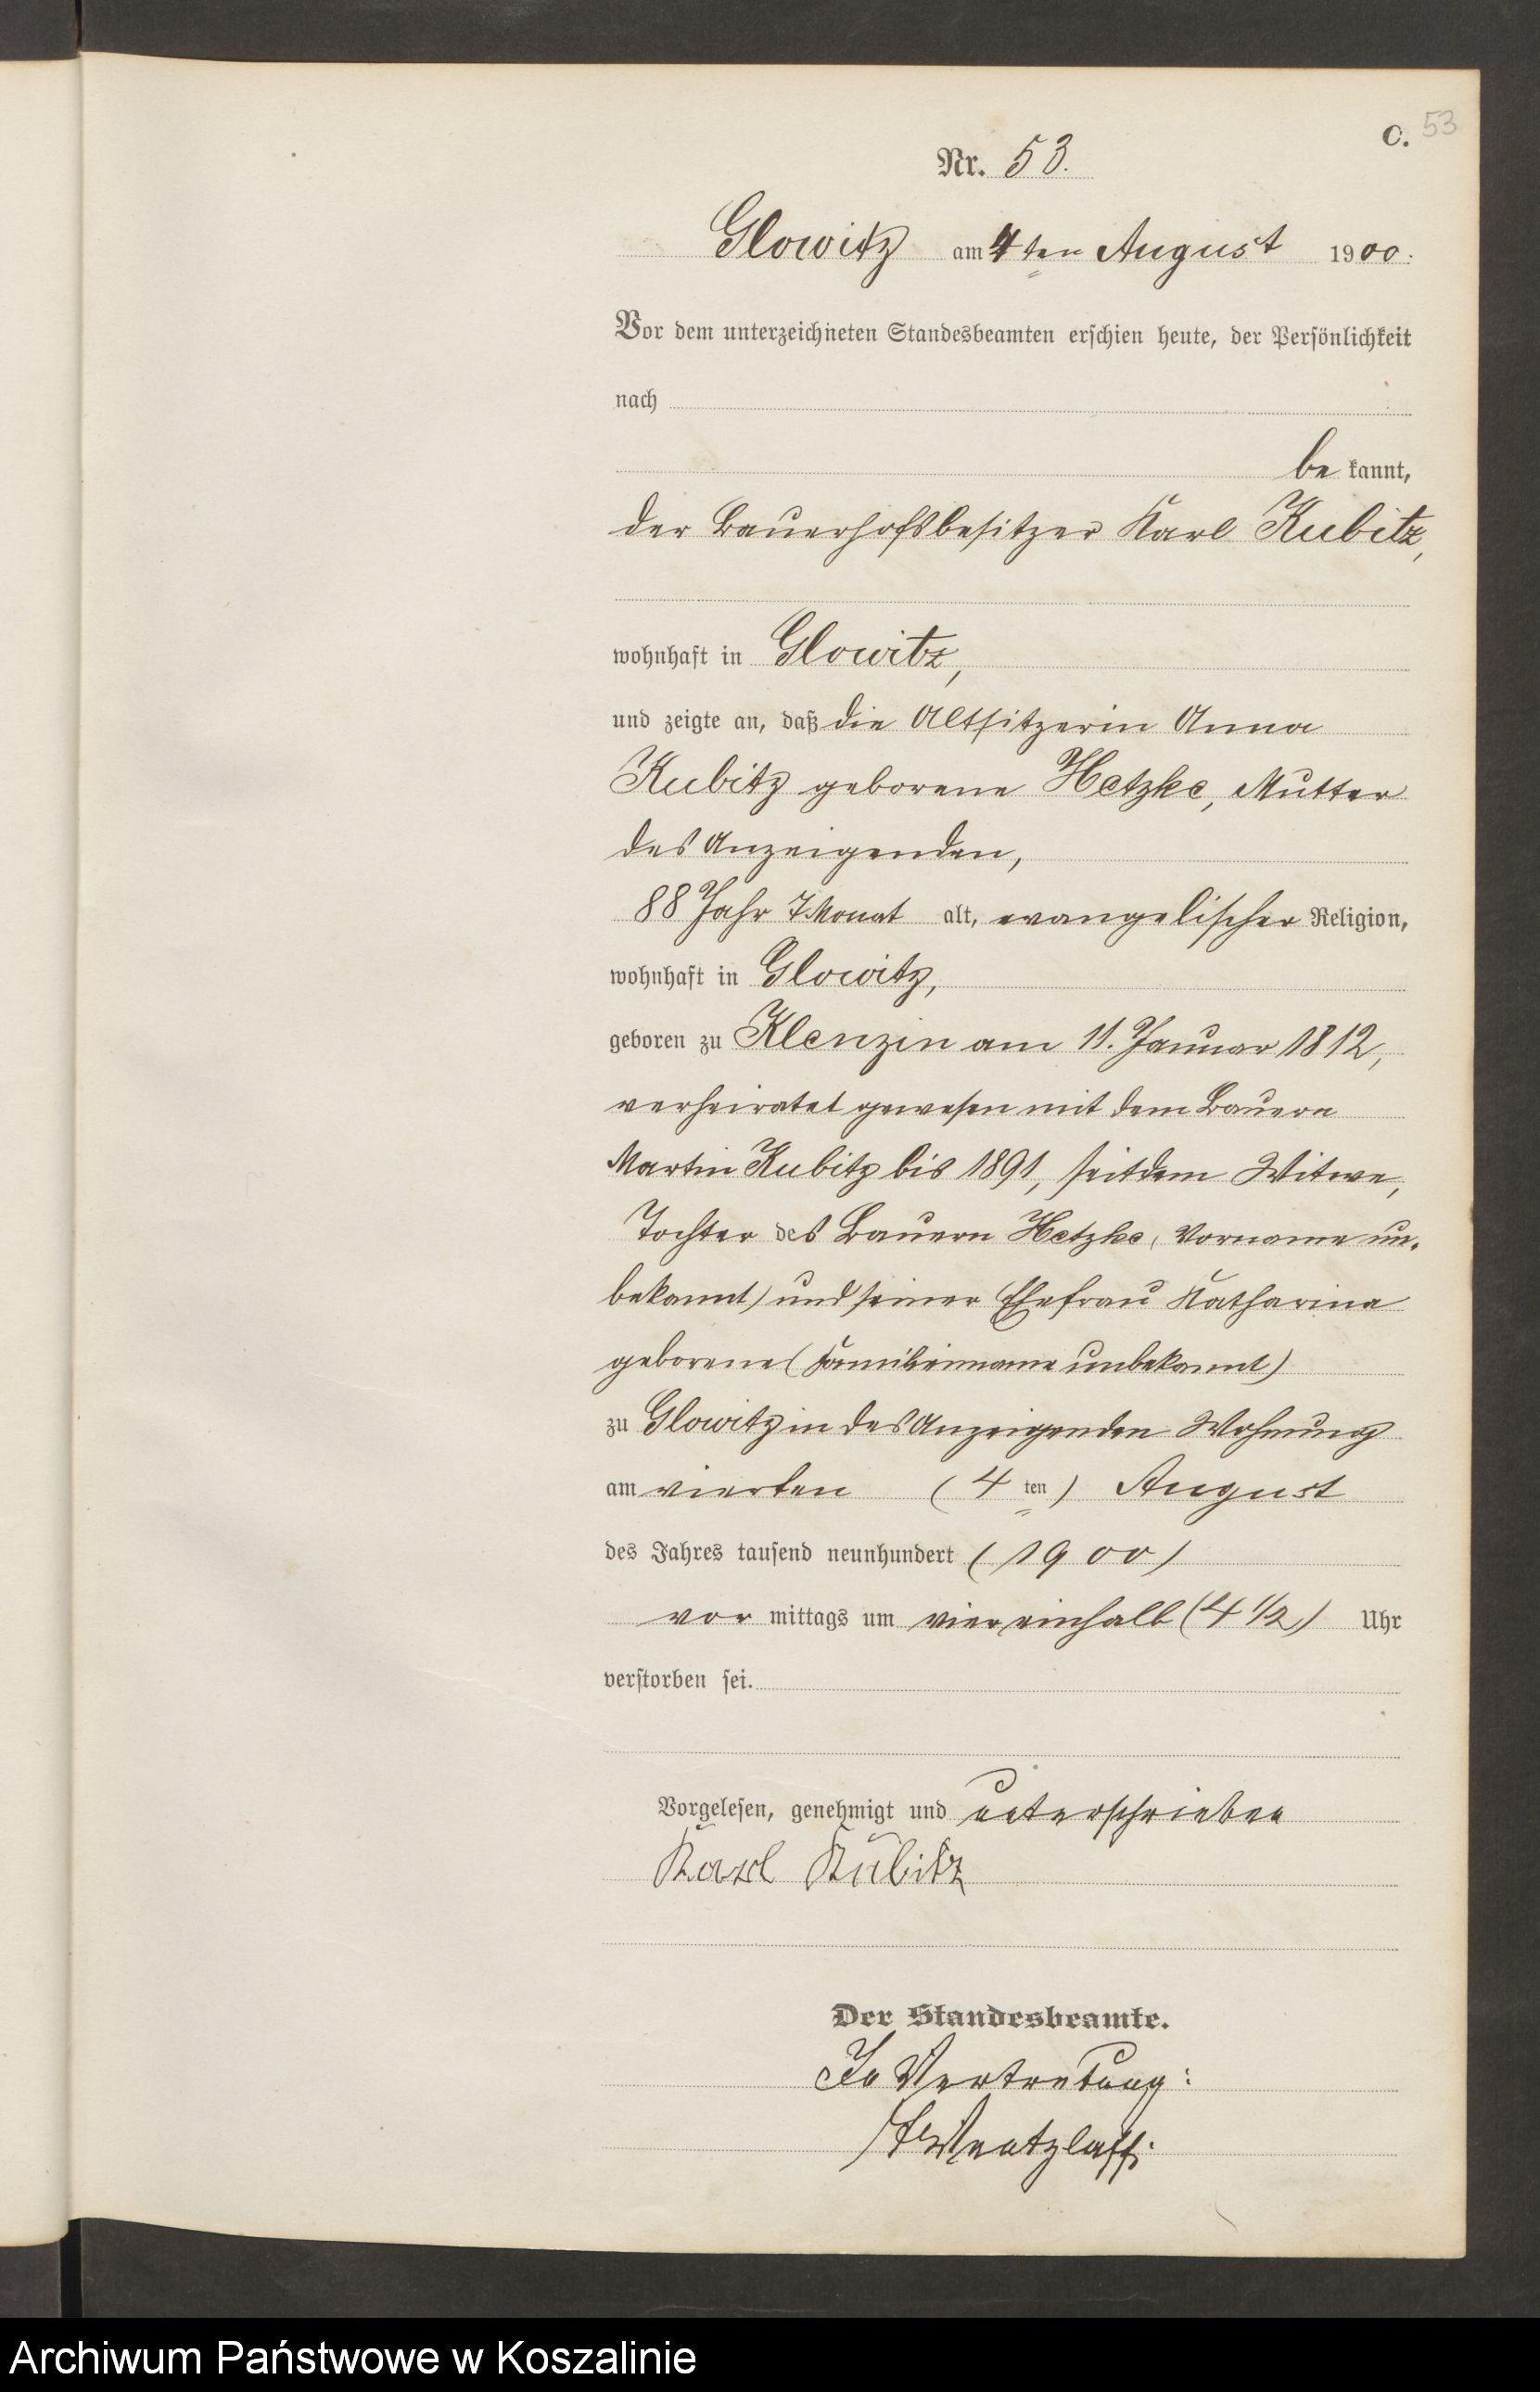 C. 53
Nr. 53.
Glowitz am 4ten August 1900.
Vor dem unterzeichneten Standesbeamten erschien heute, der Persönlichkeit
nach
be kannt,
der Bauerhofsbesitzer Karl Kubitz,
wohnhaft in Glowitz,
und zeigte an, daß die Altsitzerin Anna
Kubitz geborene Hetzke, Mutter
des Anzeigenden,
88 Jahr 7 Monat alt, evangelischer Religion,
wohnhaft in Glowitz,
geboren zu Klenzin am 11. Januar 1812,
verheiratet gewesen mit dem Bauern
Martin Kubitz bis 1891, seitdem Witwe,
Tochter des Bauern Hetzke, Vorname un-
bekannt) und seiner Ehefrau Katharina
geborene (Familienname unbekannt)
zu Glowitz in des Anzeigenden Wohnung
am vierten (4 ten) August
des Jahres tausend neunhundert (1900)
vor mittags um viereinhalb (4 1/2) Uhr
verstorben sei.
Vorgelesen, genehmigt und unterschrieben
Karl Kubitz
Der Standesbeamte.
In Vertretung:
Wentzlaff.
Archiwum Państwowe w Koszalinie